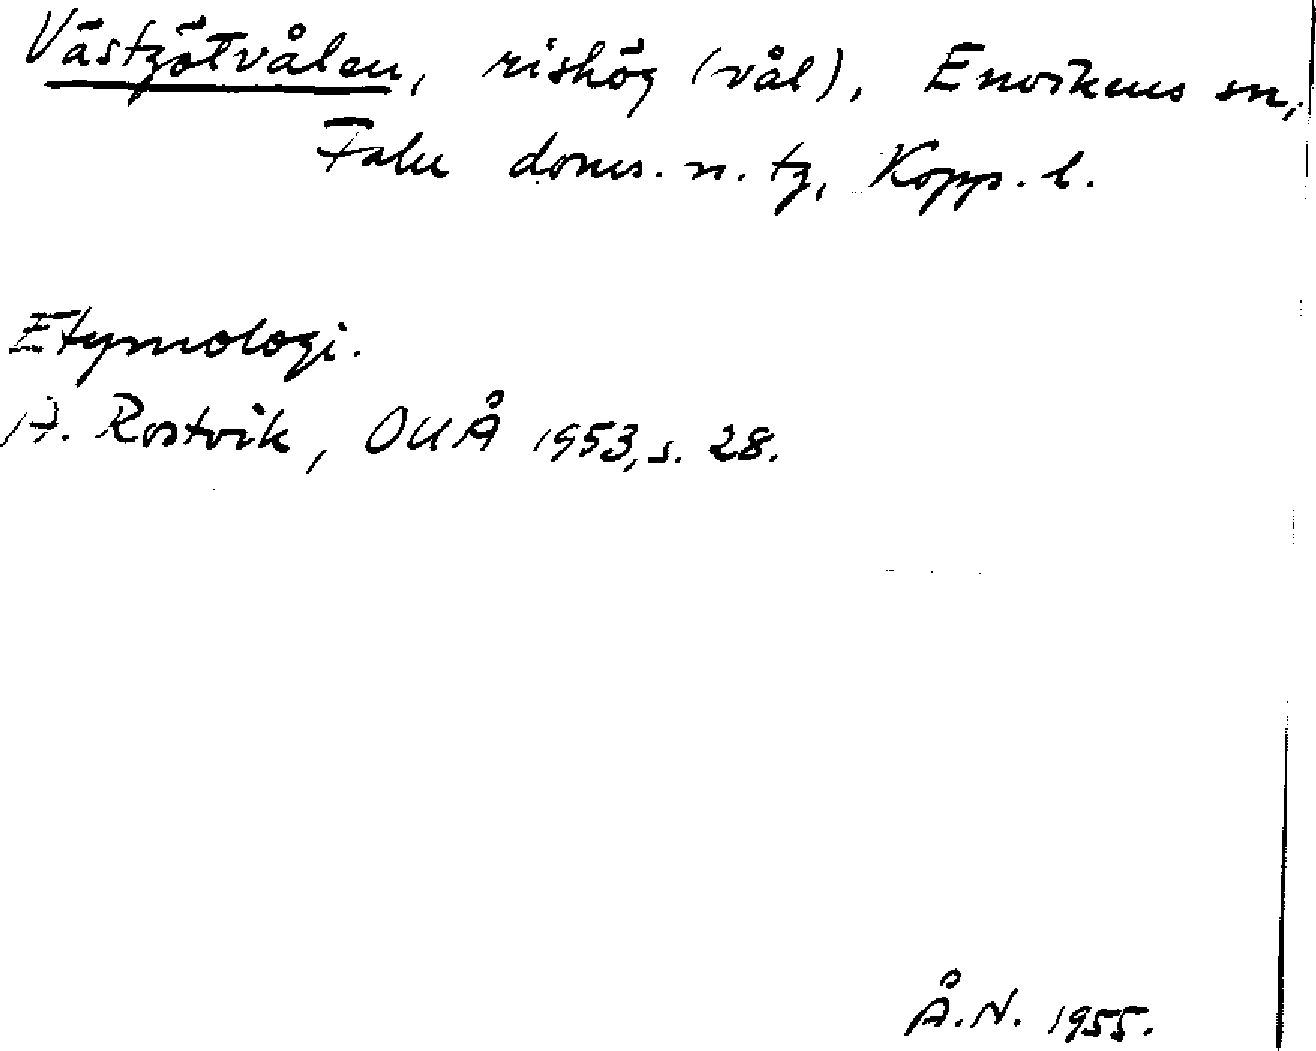 Västgötvålen, rishög (vål), Envikens sn,
Falu doms. n. tg, Kopp. l.
Etymologi.
A. Rostvik, OUÅ 1953, s. 28.
Å.N. 1955.